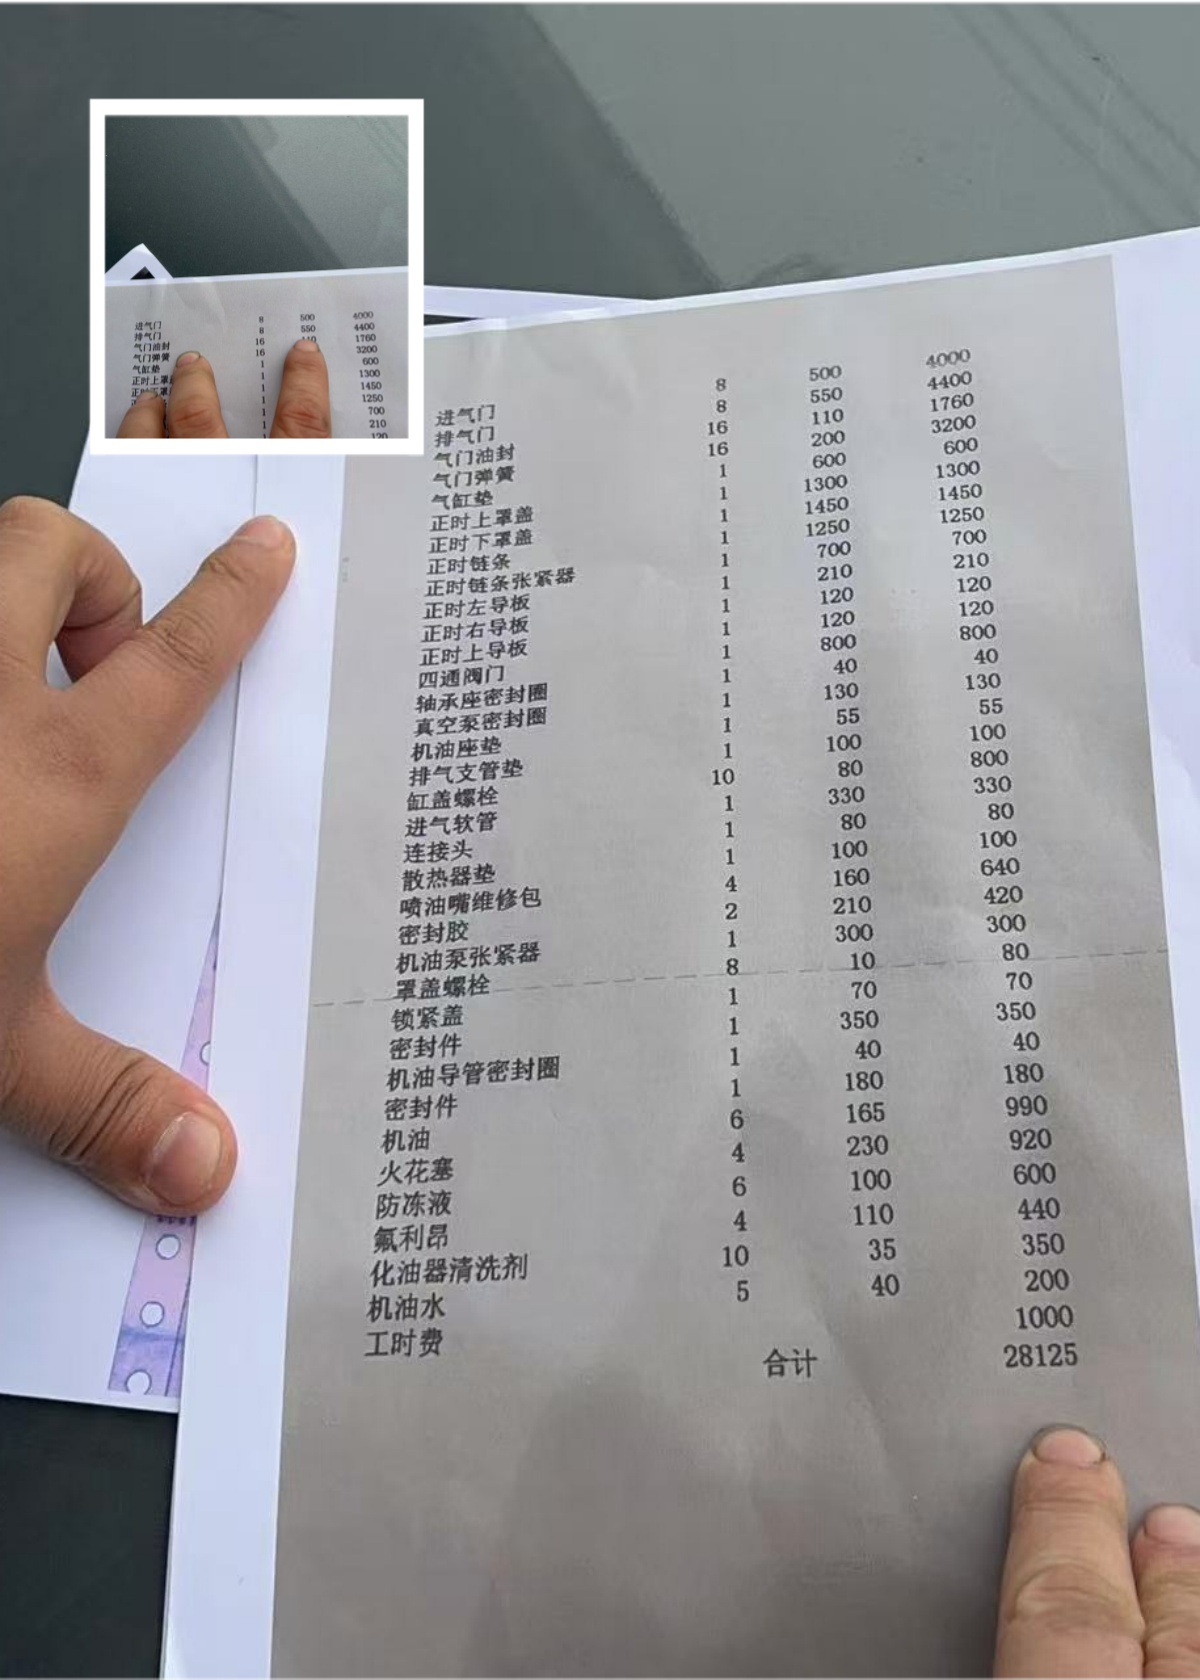 进气门 8 500 4000
排气门 8 550 4400
气门油封 16 1760
气门弹簧 16 3200
气缸垫 1 600
正时上罩 1 1300
1 1450
1 1250
1 700
1 210
120
进气门 8 500 4000
排气门 8 550 4400
气门油封 16 110 1760
气门弹簧 16 200 3200
气缸垫 1 600 600
正时上罩盖 1 1300 1300
正时下罩盖 1 1450 1450
正时链条 1 1250 1250
正时链条张紧器 1 700 700
正时左导板 1 210 210
正时右导板 1 120 120
正时上导板 1 120 120
四通阀门 1 800 800
轴承座密封圈 1 40 40
真空泵密封圈 1 130 130
机油座垫 1 55 55
排气支管垫 1 100 100
缸盖螺栓 10 80 800
进气软管 1 330 330
连接头 1 80 80
散热器垫 1 100 100
喷油嘴维修包 4 160 640
密封胶 2 210 420
机油泵张紧器 1 300 300
罩盖螺栓 8 10 80
锁紧盖 1 70 70
密封件 1 350 350
机油导管密封圈 1 40 40
密封件 1 180 180
机油 6 165 990
火花塞 4 230 920
防冻液 6 100 600
氟利昂 4 110 440
化油器清洗剂 10 35 350
机油水 5 40 200
工时费 1000
合计 28125